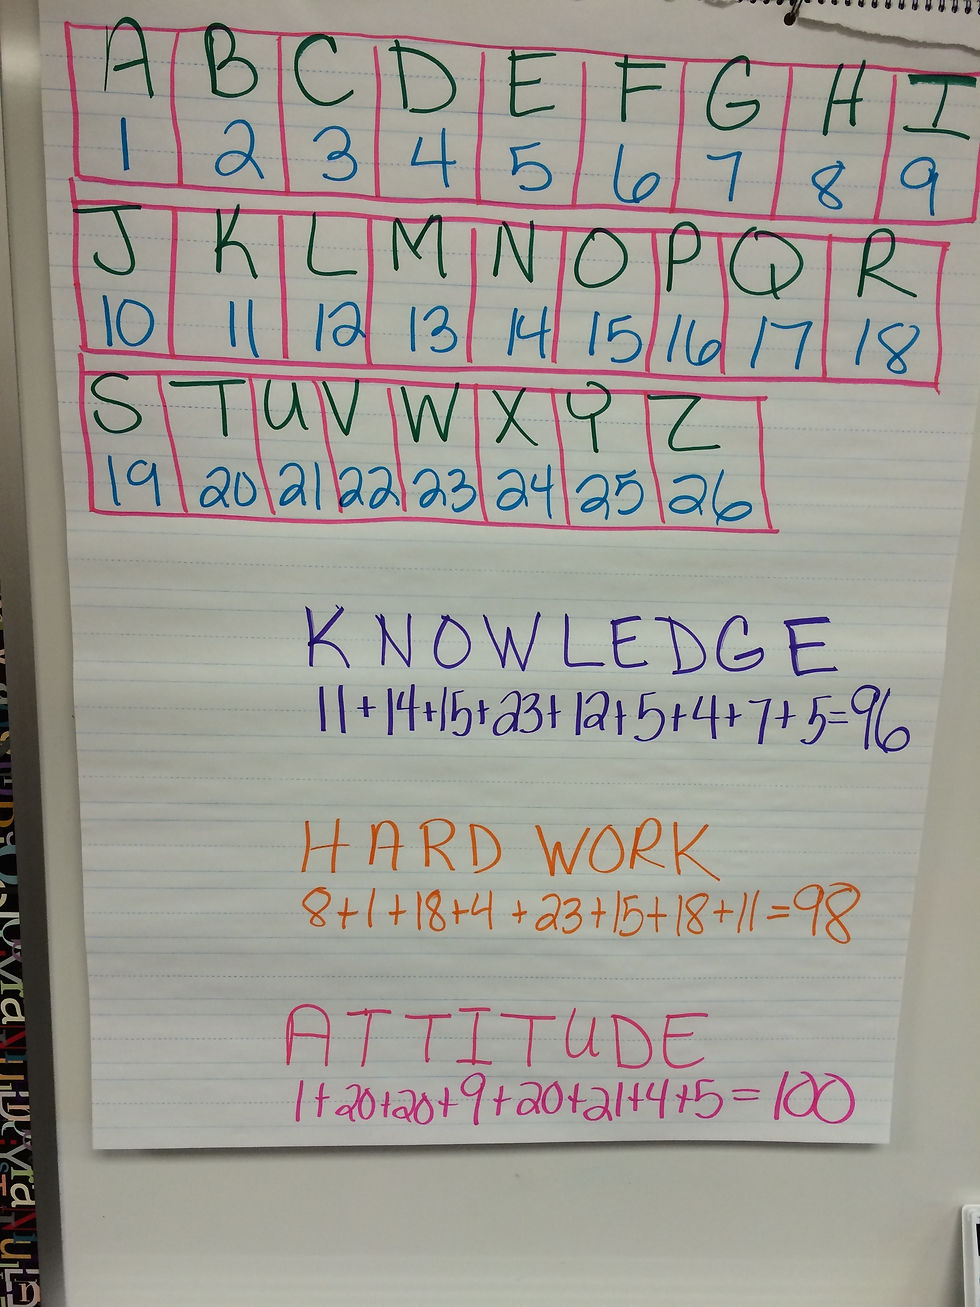 A B C D E F G H I
1 2 3 4 5 6 7 8 9
J K L M N O P Q R
10 11 12 13 14 15 16 17 18
S T U V W X Y Z
19 20 21 22 23 24 25 26
KNOWLEDGE
11+14+15+23+12+5+4+7+5=96
HARD WORK
8+1+18+4+23+15+18+11=98
ATTITUDE
1+20+20+9+20+21+4+5=100